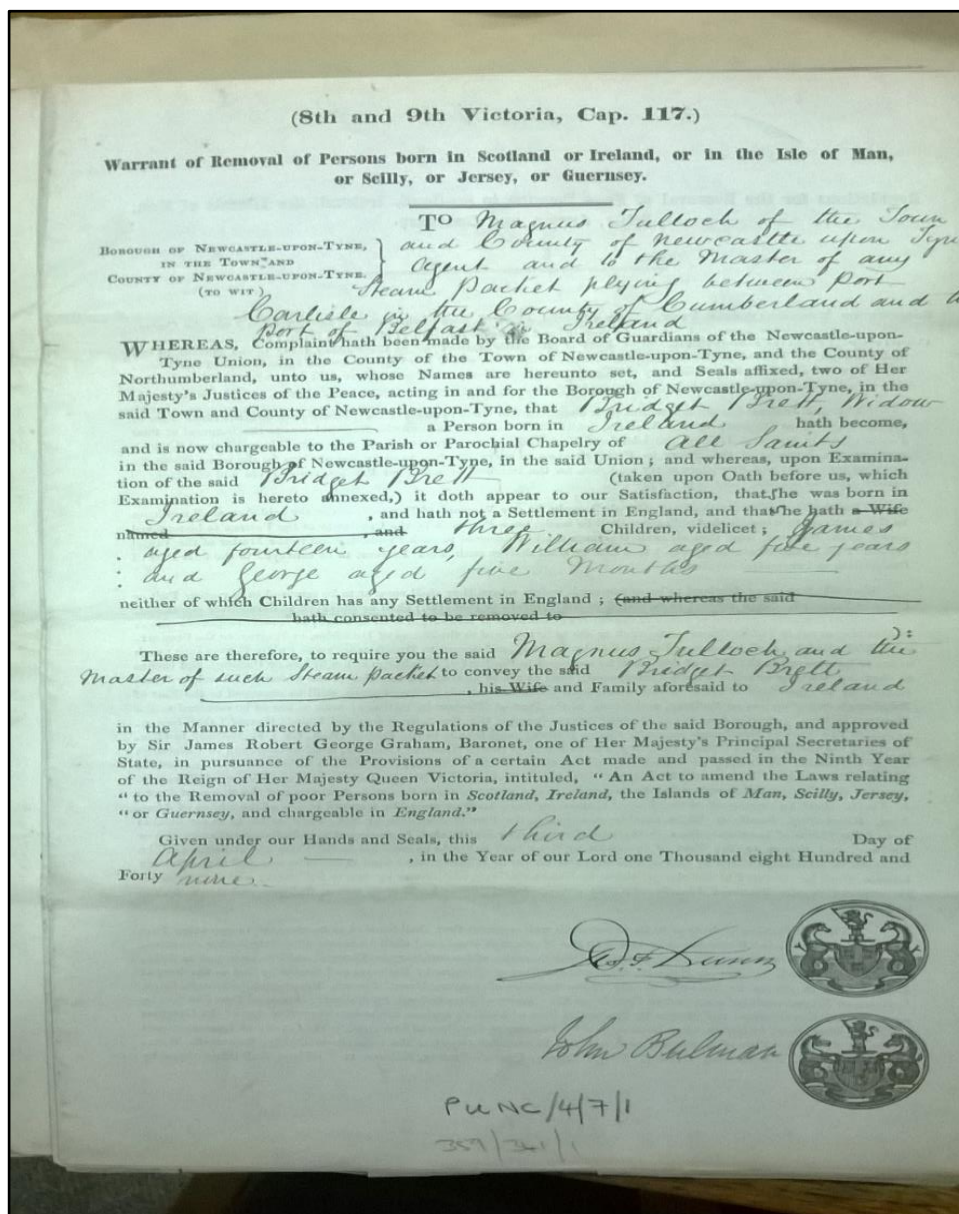 (8th and 9th Victoria, Cap. 117.)
Warrant of Removal of Persons born in Scotland or Ireland, or in the Isle of Man,
or Scilly, or Jersey, or Guernsey.
TO Magnus Tulloch of the Town
BOROUGH OF NEWCASTLE-UPON-TYNE, and County of Newcastle upon Tyne
IN THE TOWN AND Agent and to the Master of any
COUNTY OF NEWCASTLE-UPON-TYNE.
(TO WIT) Steam Packet plying between Port
Carlisle in the County of Cumberland and
Port of Belfast in Ireland
WHEREAS, Complaint hath been made by the Board of Guardians of the Newcastle-upon-
Tyne Union, in the County of the Town of Newcastle-upon-Tyne, and the County of
Northumberland, unto us, whose Names are hereunto set, and Seals affixed, two of Her
Majesty's Justices of the Peace, acting in and for the Borough of Newcastle-upon-Tyne, in the
said Town and County of Newcastle-upon-Tyne, that Bridget Brett, Widow
a Person born in Ireland hath become,
and is now chargeable to the Parish or Parochial Chapelry of All Saints
in the said Borough of Newcastle-upon-Tyne, in the said Union; and whereas, upon Examina-
tion of the said Bridget Brett (taken upon Oath before us, which
Examination is hereto annexed,) it doth appear to our Satisfaction, that she was born in
Ireland , and hath not a Settlement in England, and that she hath a Wife
named , and three Children, videlicet; James
aged fourteen years, William aged five years
and George aged five Months
neither of which Children has any Settlement in England; (and whereas the said
hath consented to be removed to
):
These are therefore, to require you the said Magnus Tulloch and the
Master of such Steam packet to convey the said Bridget Brett
, his Wife and Family aforesaid to Ireland
in the Manner directed by the Regulations of the Justices of the said Borough, and approved
by Sir James Robert George Graham, Baronet, one of Her Majesty's Principal Secretaries of
State, in pursuance of the Provisions of a certain Act made and passed in the Ninth Year
of the Reign of Her Majesty Queen Victoria, intituled, "An Act to amend the Laws relating
"to the Removal of poor Persons born in Scotland, Ireland, the Islands of Man, Scilly, Jersey,
"or Guernsey, and chargeable in England."
Given under our Hands and Seals, this third Day of
April , in the Year of our Lord one Thousand eight Hundred and
Forty nine.
Dunn
John Bulman
PU NC/4/7/1
359/341/1